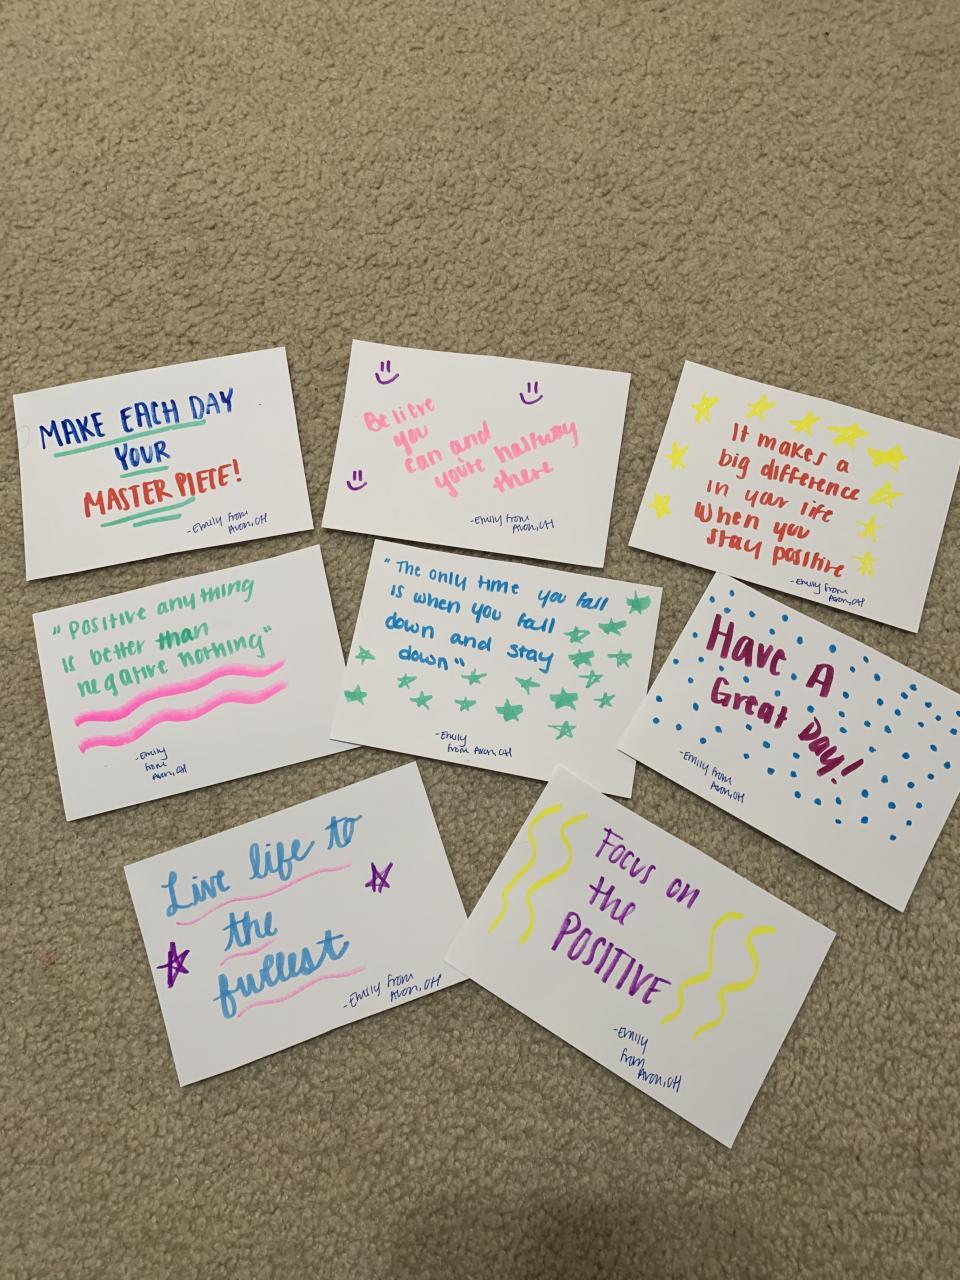 MAKE EACH DAY
YOUR
MASTER PIETE!
-Emily from
Avon, OH
Believe
you
can and
you're halfway
there
-Emily from
Avon, OH
It makes a
big difference
in your life
when you
stay positive
-Emily from
Avon, OH
"Positive anything
is better than
negative nothing"
-Emily
from
Avon, OH
"The only time you fall
is when you fall
down and stay
down"
-Emily
from Avon, OH
Have A
Great Day!
-Emily from
Avon, OH
Live life to
the
fullest
-Emily from
Avon, OH
Focus on
the
POSITIVE
-Emily
from
Avon, OH